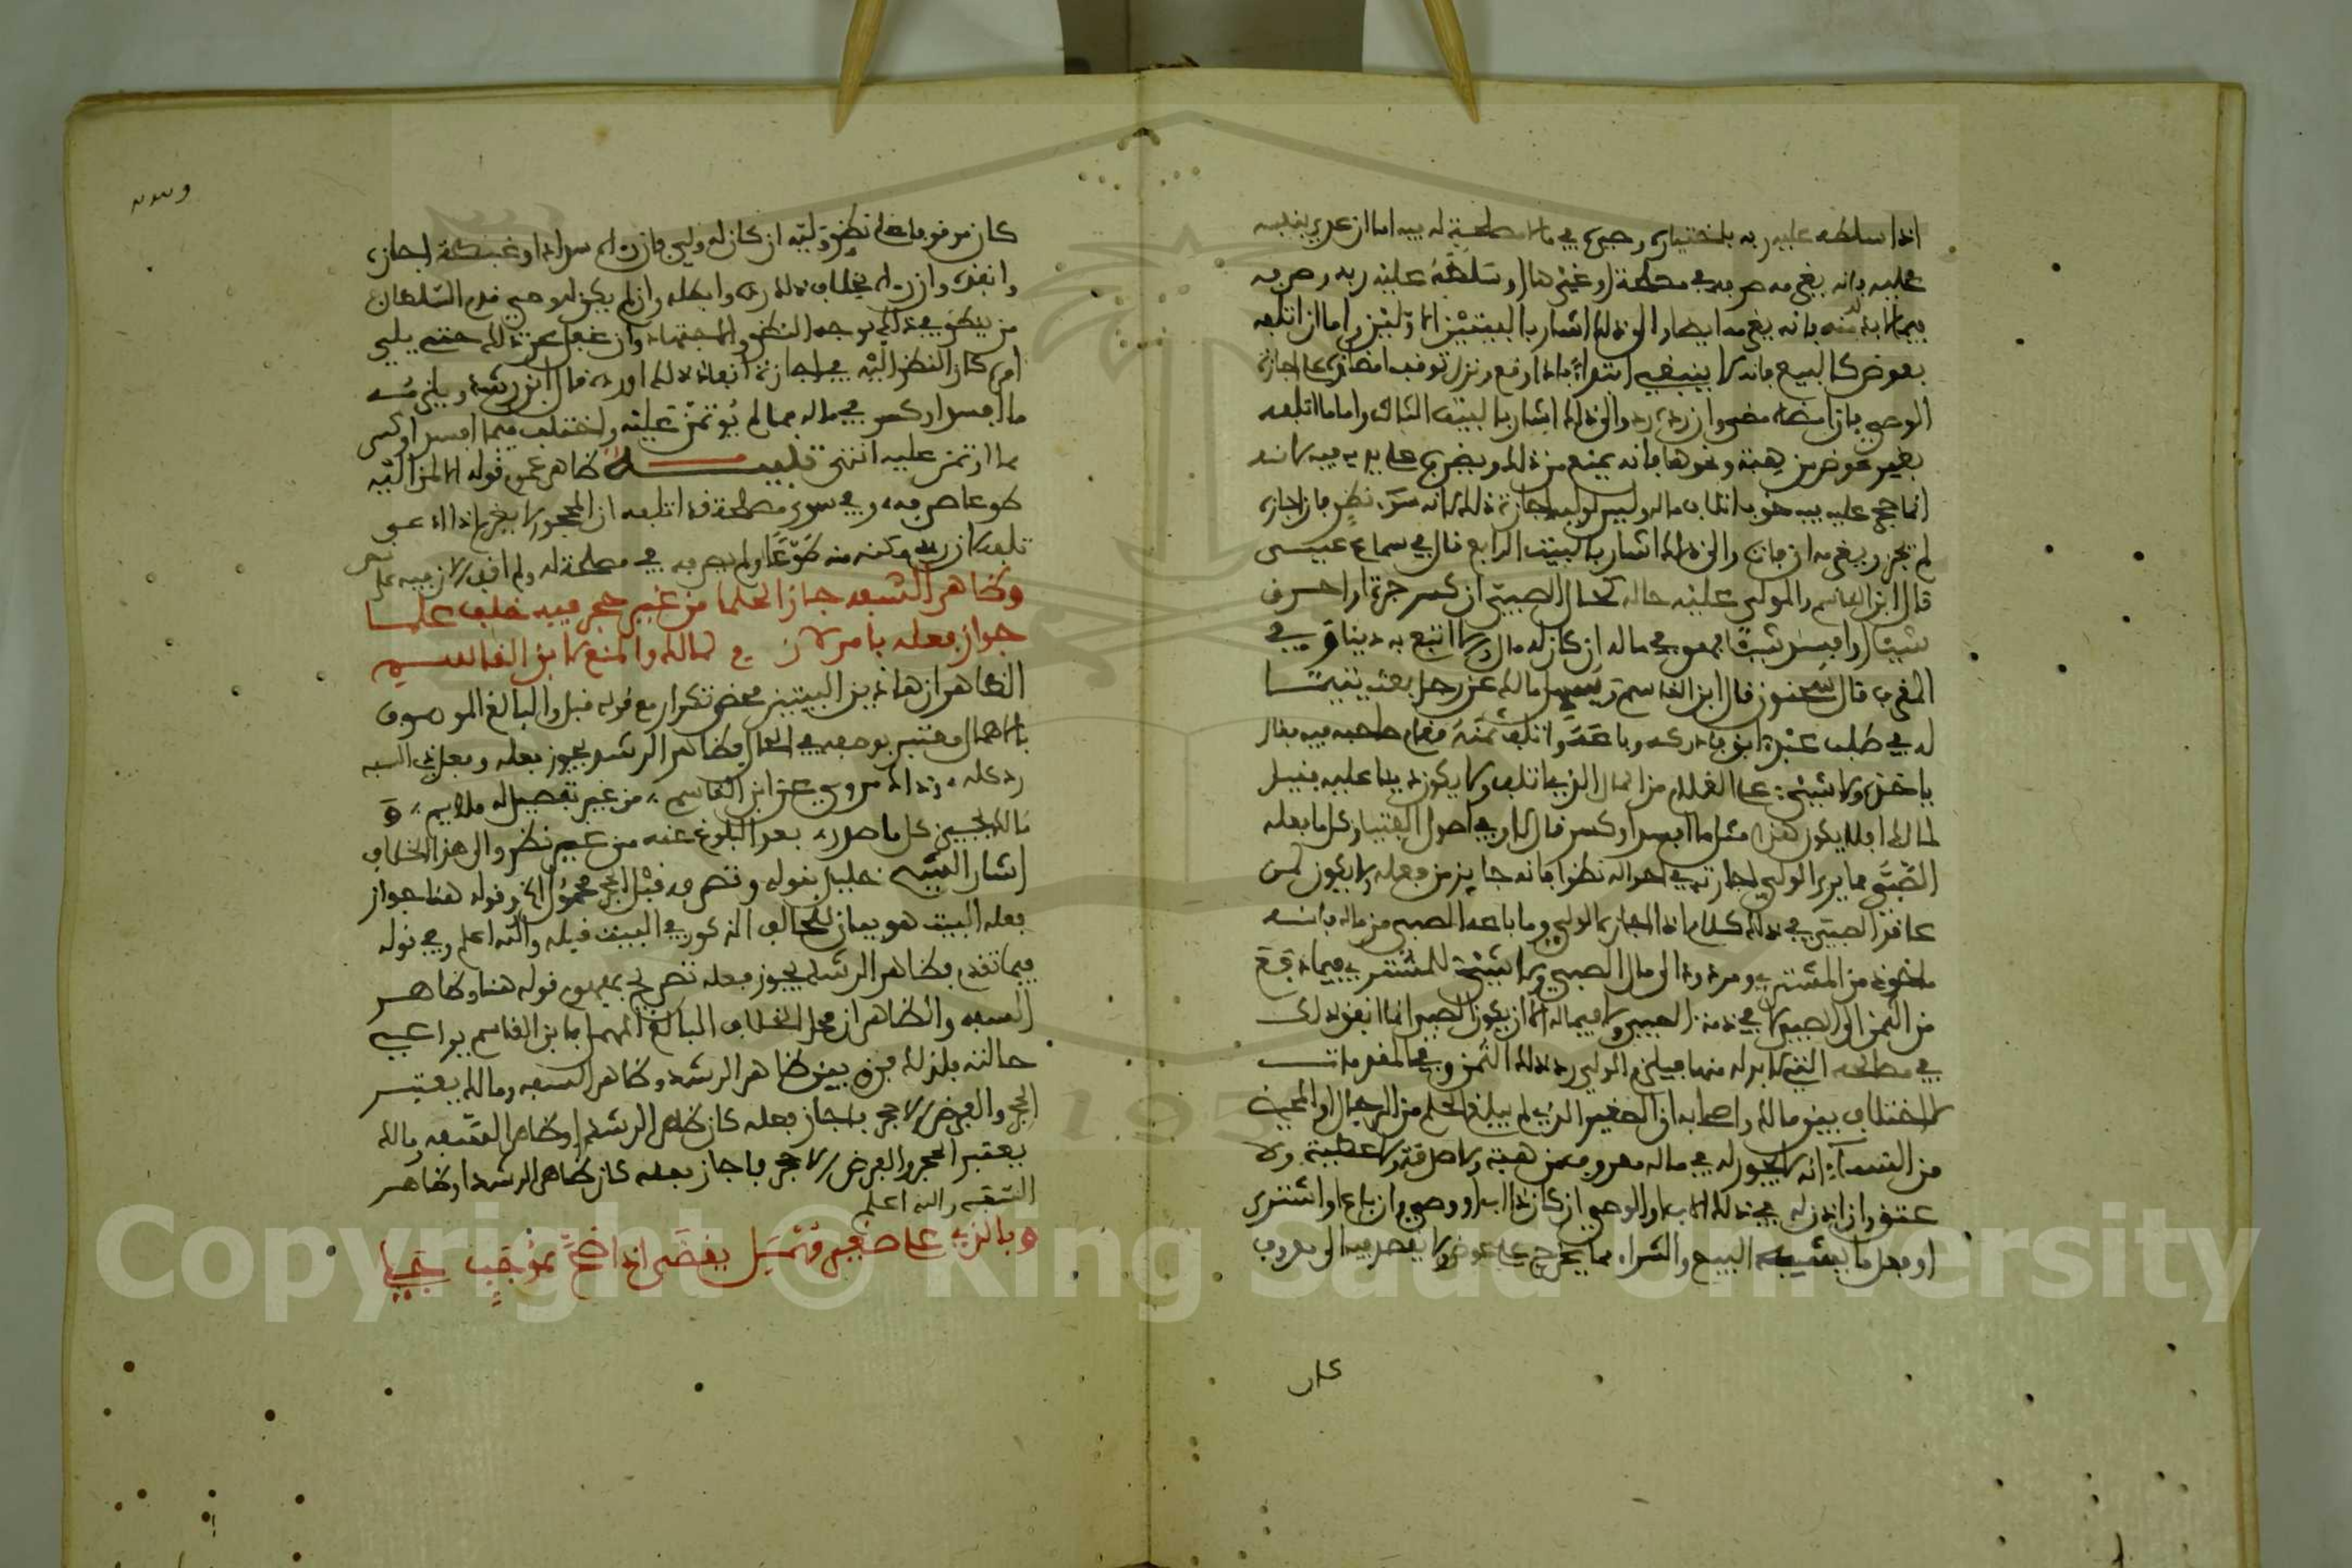 اذا سلطه عليه ربه باختياره وصرفه في مالا مصلحة له فيه اما ان
عليه فانه يغرمه صرفه في مصلحة او غيرها او سلطه عليه ربه وصرفه
فانه يغرمه ايضا والى ذلك اشار بالبيتين الاولين واما ان اتلفه
بعوض كالبيع فانه لا ينبغي ابتداء فاذا وقع ونزل توقف امضاؤه على اجازة
الوصي فان امضاه مضى وان رده رد والى ذلك اشار بالبيت الثالث واما ما اتلفه
بغير عوض من هبة ونحوها فانه يمنع من ذلك ويضرب على يديه فيه لانه
انما حجر عليه خوف اتلاف ماله وليس لوليه اجازة ذلك لانه سوء نظر فان اجازه
لم يجز ويغرمه ان فات والى ذلك اشار بالبيت الرابع قال في سماع عيسى
قال ابن القاسم والمولى عليه حاله كحال الصبي ان كسر جرة او احرق
شيئا او افسد شيئا فهو في ماله ان كان له مال والا اتبع به دينا وفي
المغرب قال سحنون قال ابن القاسم وسئل مالك عن رجل بعث يتيما
له في طلب عبد ابق فادركه وباعه واتلف ثمنه فقام صاحبه فيه فقال
ياخذه ولا شيء على الغلام من المال الذي اتلف ولا يكون دينا عليه فقيل
لمالك افلا يكون هذا مثل ما افسد او كسر قال لا وفي اصول الفتيا وكل ما فعله
الصبي مما يرى الولي اجازته في احواله نظرا فانه جائز من فعله ولا يكون لمن
عاقد الصبي في ذلك كلام اذا اجازه الولي وما باعه الصبي من ماله فانه
ماخوذ من المشتري ومردود الى مال الصبي ولا شيء للمشتري فيما دفع
من الثمن الى الصبي لا في ذمة الصبي ولا في ماله الا ان يكون الصبي انما انفق ذلك
في مصلحته التي لا بد له منها فيلزم الولي رد ذلك الثمن وفي المقدمات
لا اختلاف بين مالك واصحابه ان الصغير الذي لم يبلغ الحلم من الرجال او المحيض
من النساء انه لا يجوز له في ماله معروف من هبة ولا صدقة ولا عطية ولا
عتق وان اذن له في ذلك الاب او الوصي ان كان ذا اب او وصي وان باع او اشترى
او فعل ما يشبه البيع والشراء مما يخرج على عوض ولا يقصد فيه الى معروف
كان
كان موقوفا على نظر وليه ان كان له ولي فان راه سدادا او غبطة اجازه
وانفذه وان راه بخلاف ذلك رده وابطله وان لم يكن له وصي قدم السلطان
من ينظر في ذلك بوجه النظر والاجتهاد وان غفل عن ذلك حتى يلي
امره كان النظر اليه في اجازة انفاذ ذلك او رده قال ابن رشد ويلزمه
ما افسد او كسر في ماله مما لم يؤتمن عليه واختلف فيما افسد او كسر
مما اؤتمن عليه انتهى تنبيه ظاهر عموم قوله
طوعا صرفه وفي سوى مصلحة قد اتلفه ان المحجور لا يغرم اذا ادعى
تلفه لان ربه مكنه منه طوعا ولم يصرفه في مصلحة له ولم اقف الان فيه على نص
وظاهر السفه جاز الحلما من غير حجر فيه خلف علما
جواز فعله بامر لازم لمالك والمنع لابن القاسم
الظاهر ان هاذين البيتين محض تكرار مع قوله قبل والبالغ الموصوف
بالاهمال معتبر بوصفه في الحال فظاهر الرشد يجوز فعله وفعل ذي السفه
رد كله وذاك مروي عن ابن القاسم من غير تفصيل له ملايم و
مالك يجيز كل ما صدر بعد البلوغ عنه من غير نظر والى هذا الخلاف
اشار الشيخ خليل بقوله وتصرفه قبل الحجر محمول الخ وقوله هنا جواز
فعله البيت هو بيان للخلاف المذكور في البيت قبله والله اعلم وفي قوله
فيما تقدم فظاهر الرشد يجوز فعله تصريح بمفهوم قوله هنا وظاهر
السفه والظاهر ان محل الخلاف البالغ المهمل فابن القاسم يراعي
حالته فلذلك فرق بين ظاهر الرشد وظاهر السفه ومالك يعتبر
الحجر والفرض لا حجر فاجاز فعله كان ظاهر الرشد او ظاهر السفه ومالك
يعتبر الحجر والفرض لا حجر فاجاز فعله كان ظاهر الرشد او ظاهر
السفه والله اعلم
وبالذي على صغير مهمل يقضى اذا صح بموجب جلي